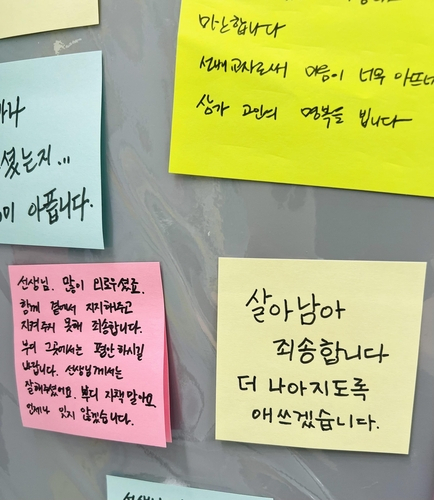 미안합니다
선배교사로써 마음이 너무 아프네
삼가 고인의 명복을 빕니다
셨는지...
아픕니다.
선생님. 많이 외로우셨죠.
함께 곁에서 지지해주고
지켜주지 못해 죄송합니다.
부디 그곳에서는 평안하시길
바랍니다. 선생님께서는
잘해주셨어요. 부디 자책 말아요
언제나 잊지 않겠습니다.
살아남아
죄송합니다
더 나아지도록
애쓰겠습니다.